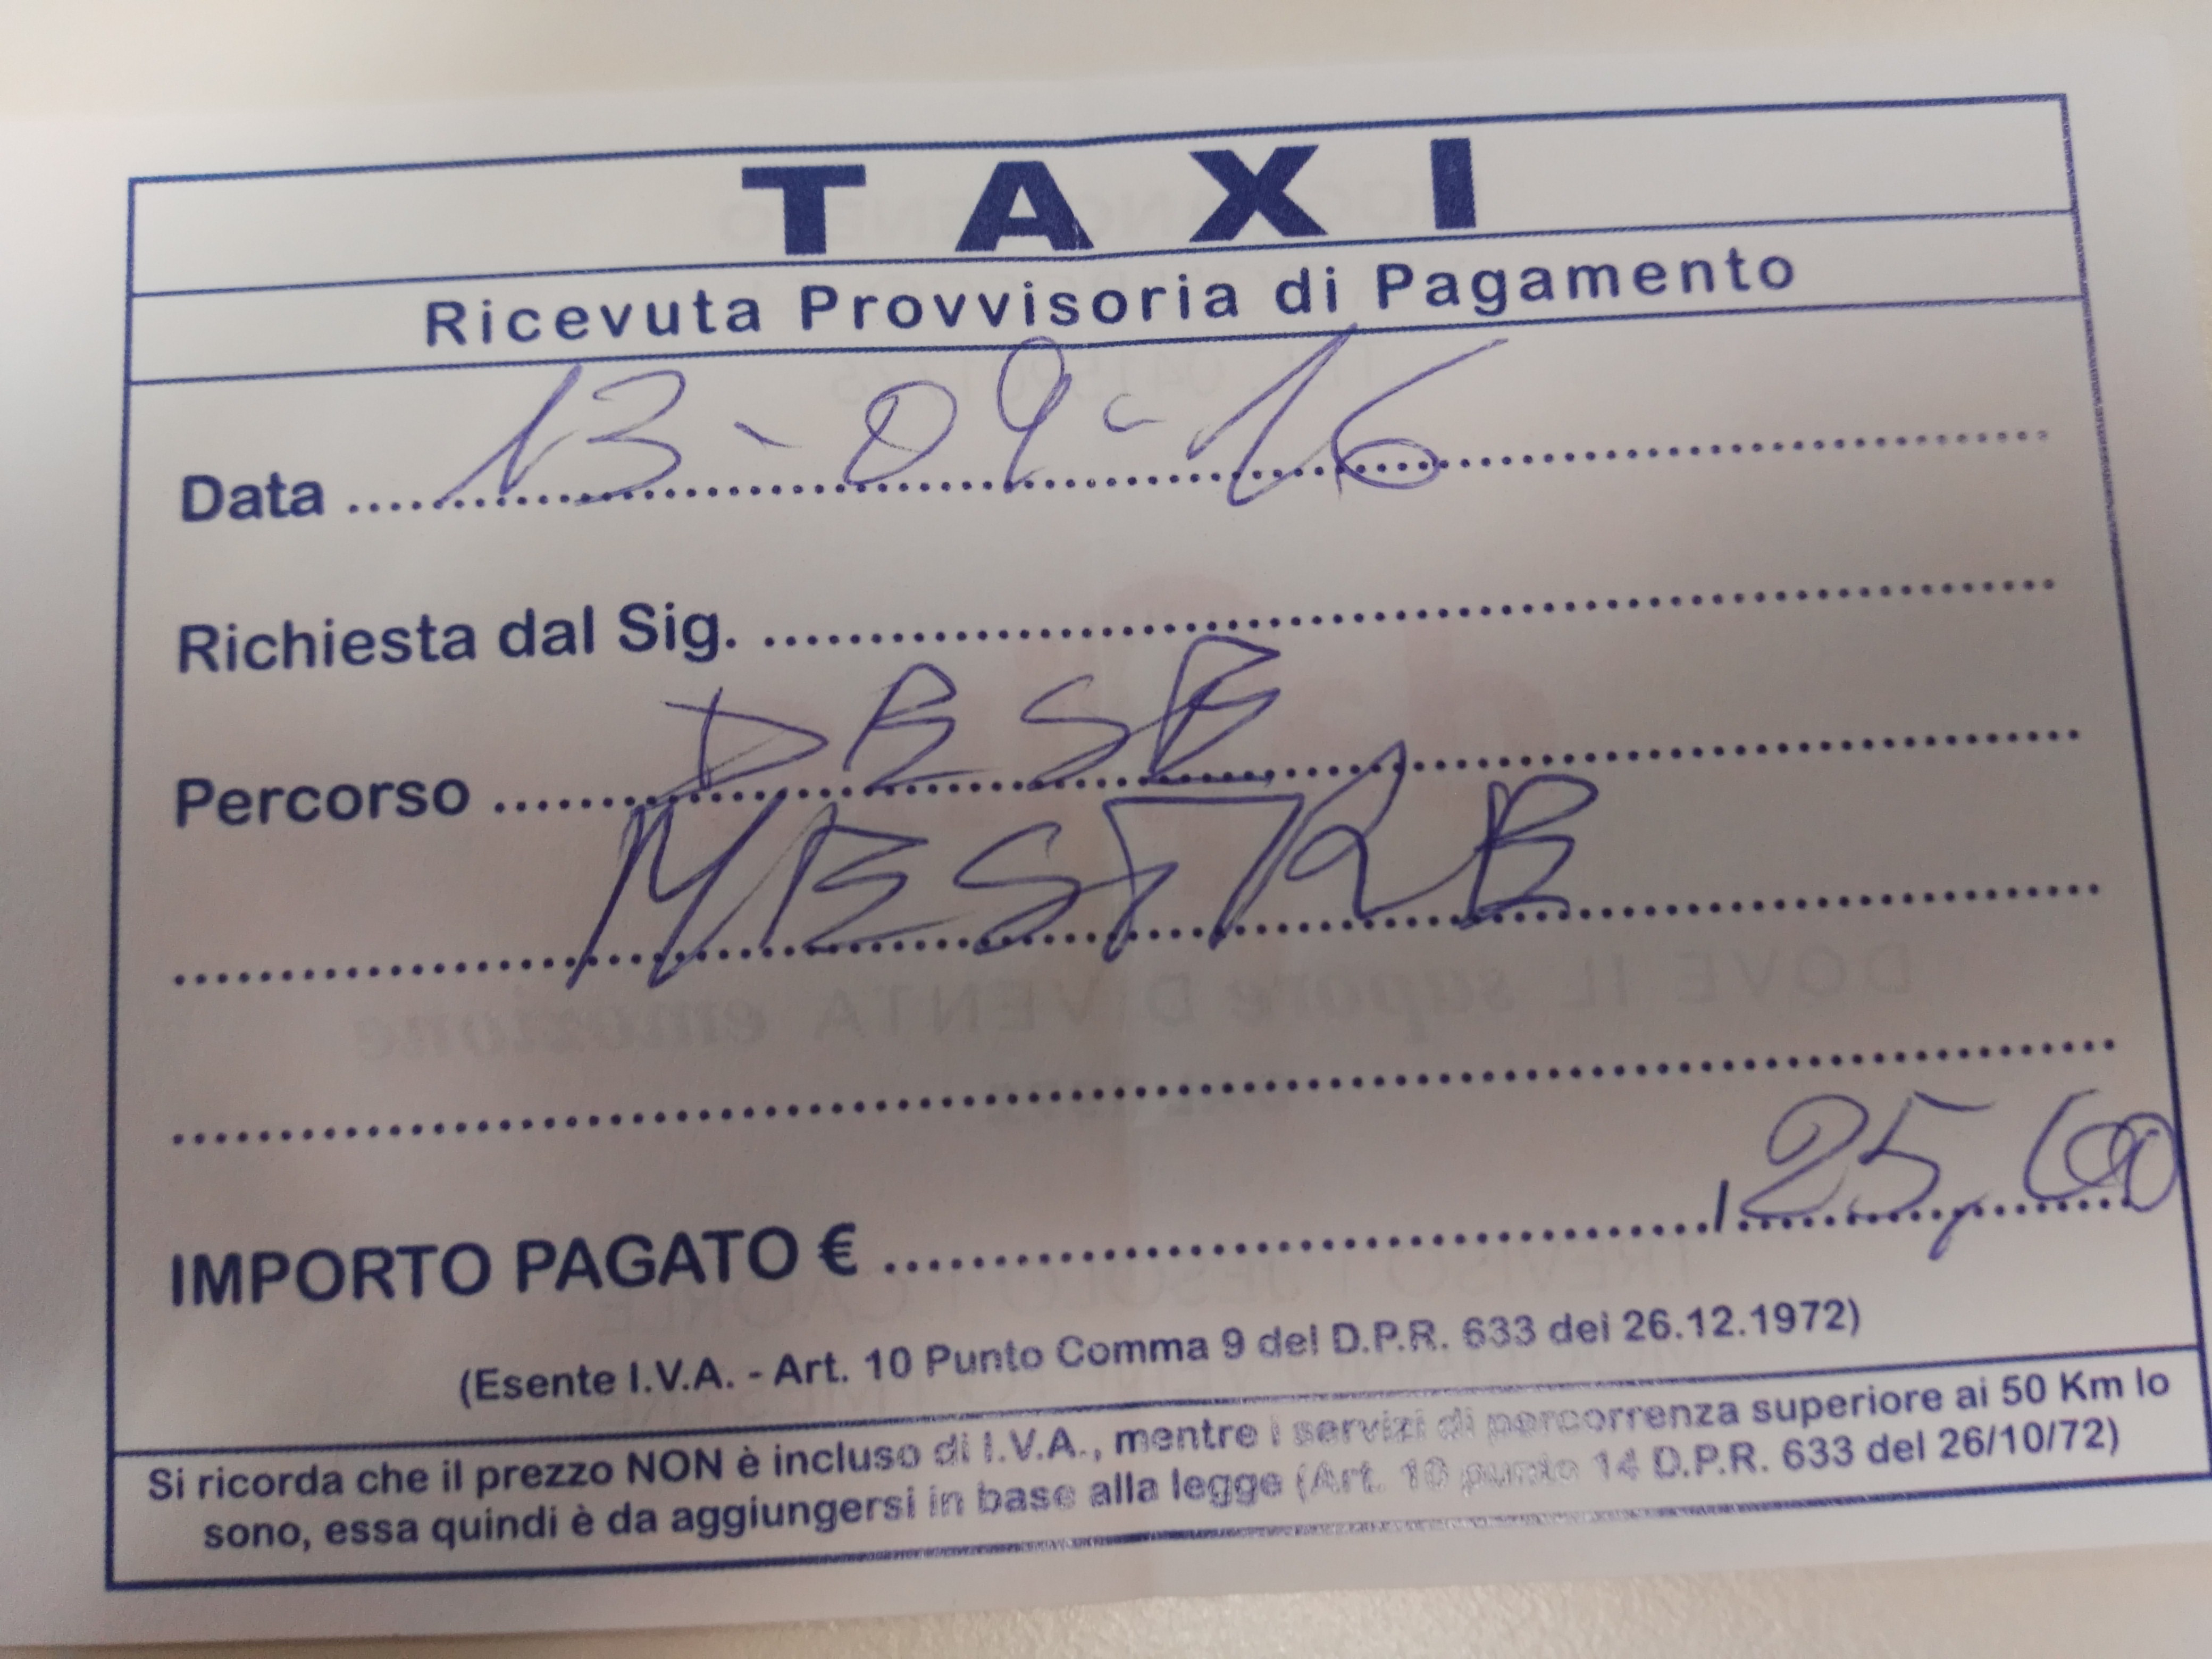 TAXI
Ricevuta Provvisoria di Pagamento
Data 13-09-16
Richiesta dal Sig.
Percorso DESE
MESTRE
IMPORTO PAGATO € 25,00
(Esente I.V.A. - Art. 10 Punto Comma 9 del D.P.R. 633 dei 26.12.1972)
Si ricorda che il prezzo NON è incluso di I.V.A., mentre i servizi di percorrenza superiore ai 50 Km lo
sono, essa quindi è da aggiungersi in base alla legge (Art. 10 punto 14 D.P.R. 633 del 26/10/72)
DOVE IL sapore DIVENTA emozione